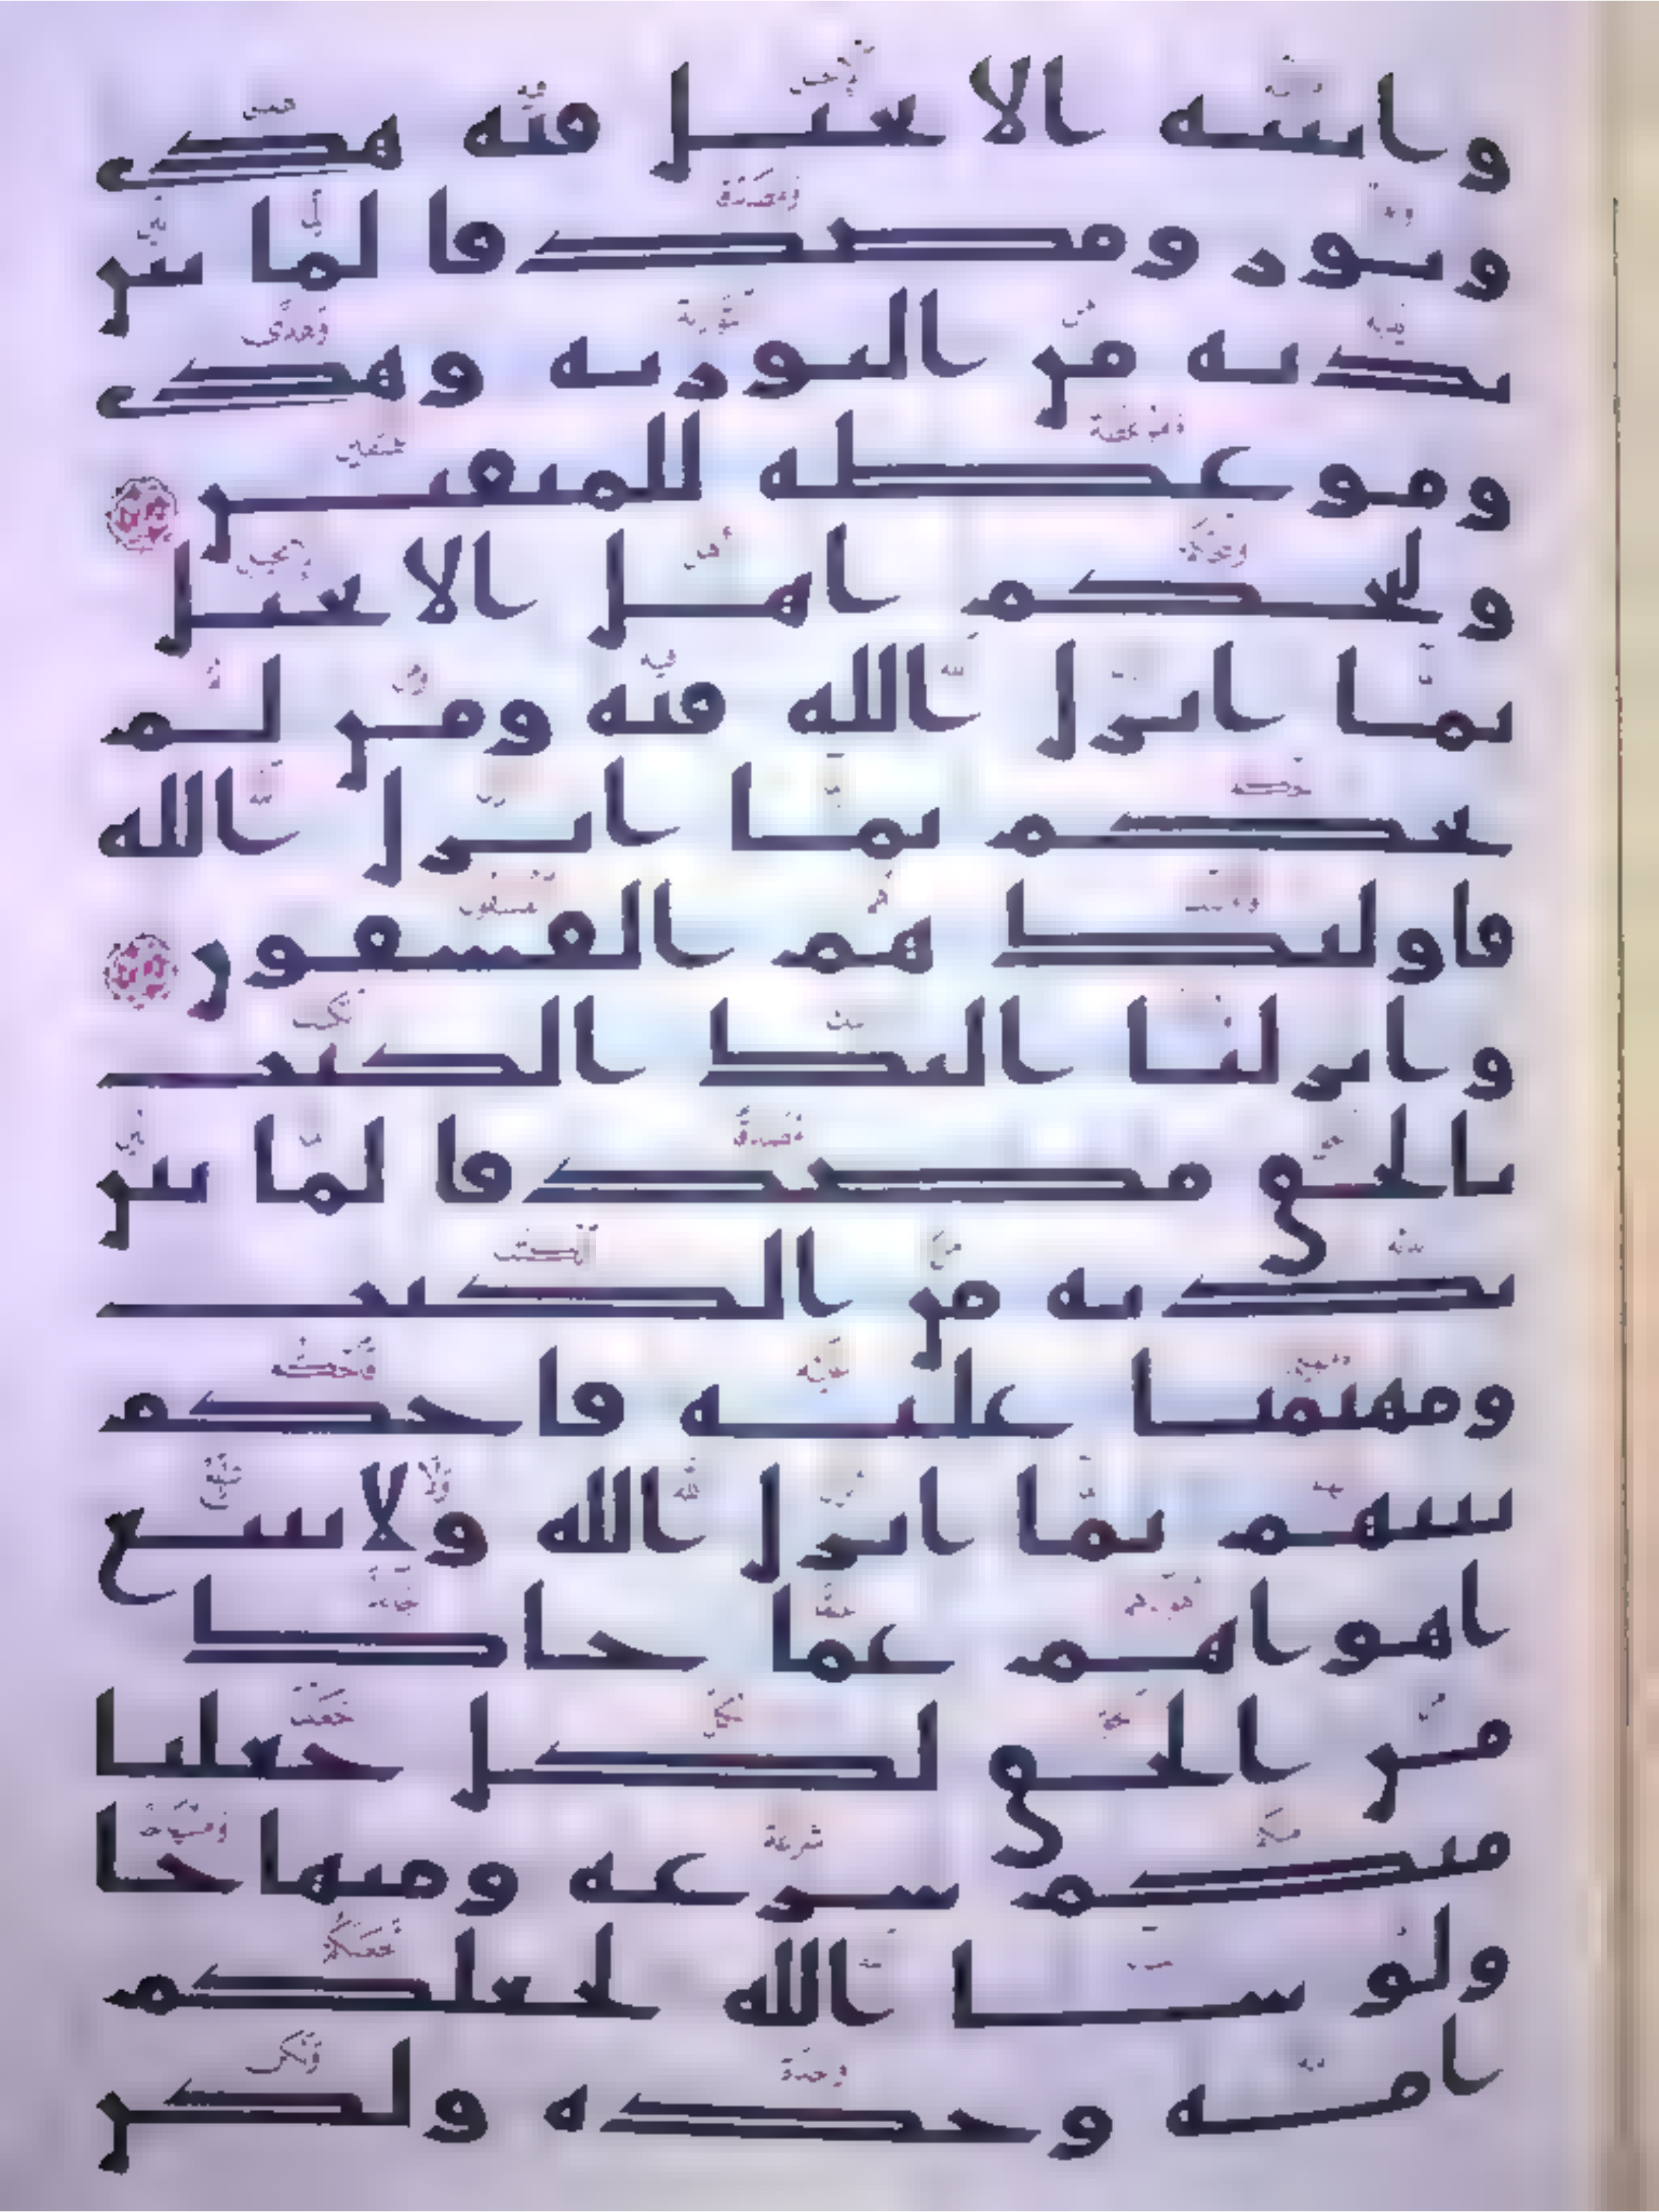 واتينه الانجيل فيه هدى
ونور ومصدقا لما بين
يديه من التورية وهدى
وموعظة للمتقين
وليحكم اهل الانجيل
بما انزل الله فيه ومن لم
يحكم بما انزل الله
فاولئك هم الفسقون
وانزلنا اليك الكتب
بالحق مصدقا لما بين
يديه من الكتب
ومهيمنا عليه فاحكم
بينهم بما انزل الله ولا تتبع
اهواهم عما جاك
من الحق لكل جعلنا
منكم شرعة ومنهاجا
ولو شا الله لجعلكم
امة وحدة ولكن